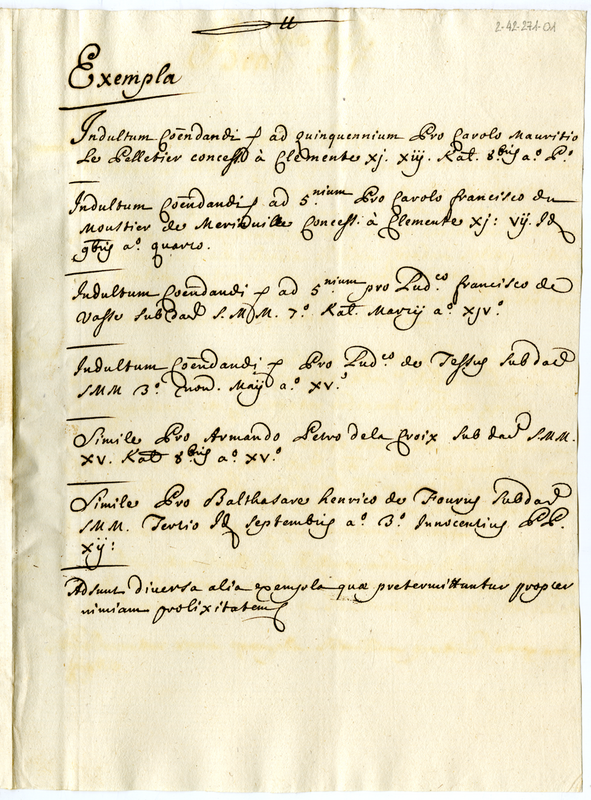 2-42-271-01
Exempla
Indultum Coēndandi ꝑ ad quinquennium Pro Carolo Mauritio
Le Pelletier concess̄ à Clemente xj. xiij. Kal. 8bris a.o P.o
Indultum Coēndandi ꝑ ad 5.nium Pro Carolo francisco du
Moustier de Merinville Concess. à Clemente xj: vij. Id
9bris a.o quarto.
Indultum Coēndandi ꝑ ad 5.nium pro Lud.co francisco de
Vasse sub dat S.M.M. 7.o Kal. Martij a.o xjv.o
Indultum Coēndandi ꝑ Pro Lud.co de Tessus sub dat
SMM 3.o non. Maij a.o xv.o
Simile Pro Armando Petro dela Croix sub dat SMM.
xv. Kal 8.bris a.o xv.o
Simile Pro Balthasare henrico de Fourus sub dat
SMM. Tertio Id septembris a.o 3.o Innocentius PP.
xij:
Adsunt diversa alia exempla quæ pretermittuntur propter
nimiam prolixitatem